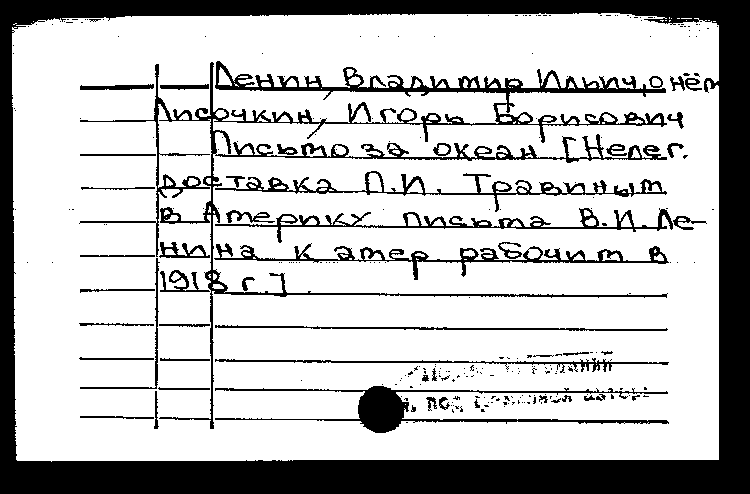 Ленин, Владимир Ильич, о нём
Лисочкин, Игорь Борисович
Письмо за океан [Нелег.
доставка П.И. Травиным
в Америку письма В.И. Ле-
нина к амер рабочим в
1918 г.]
под